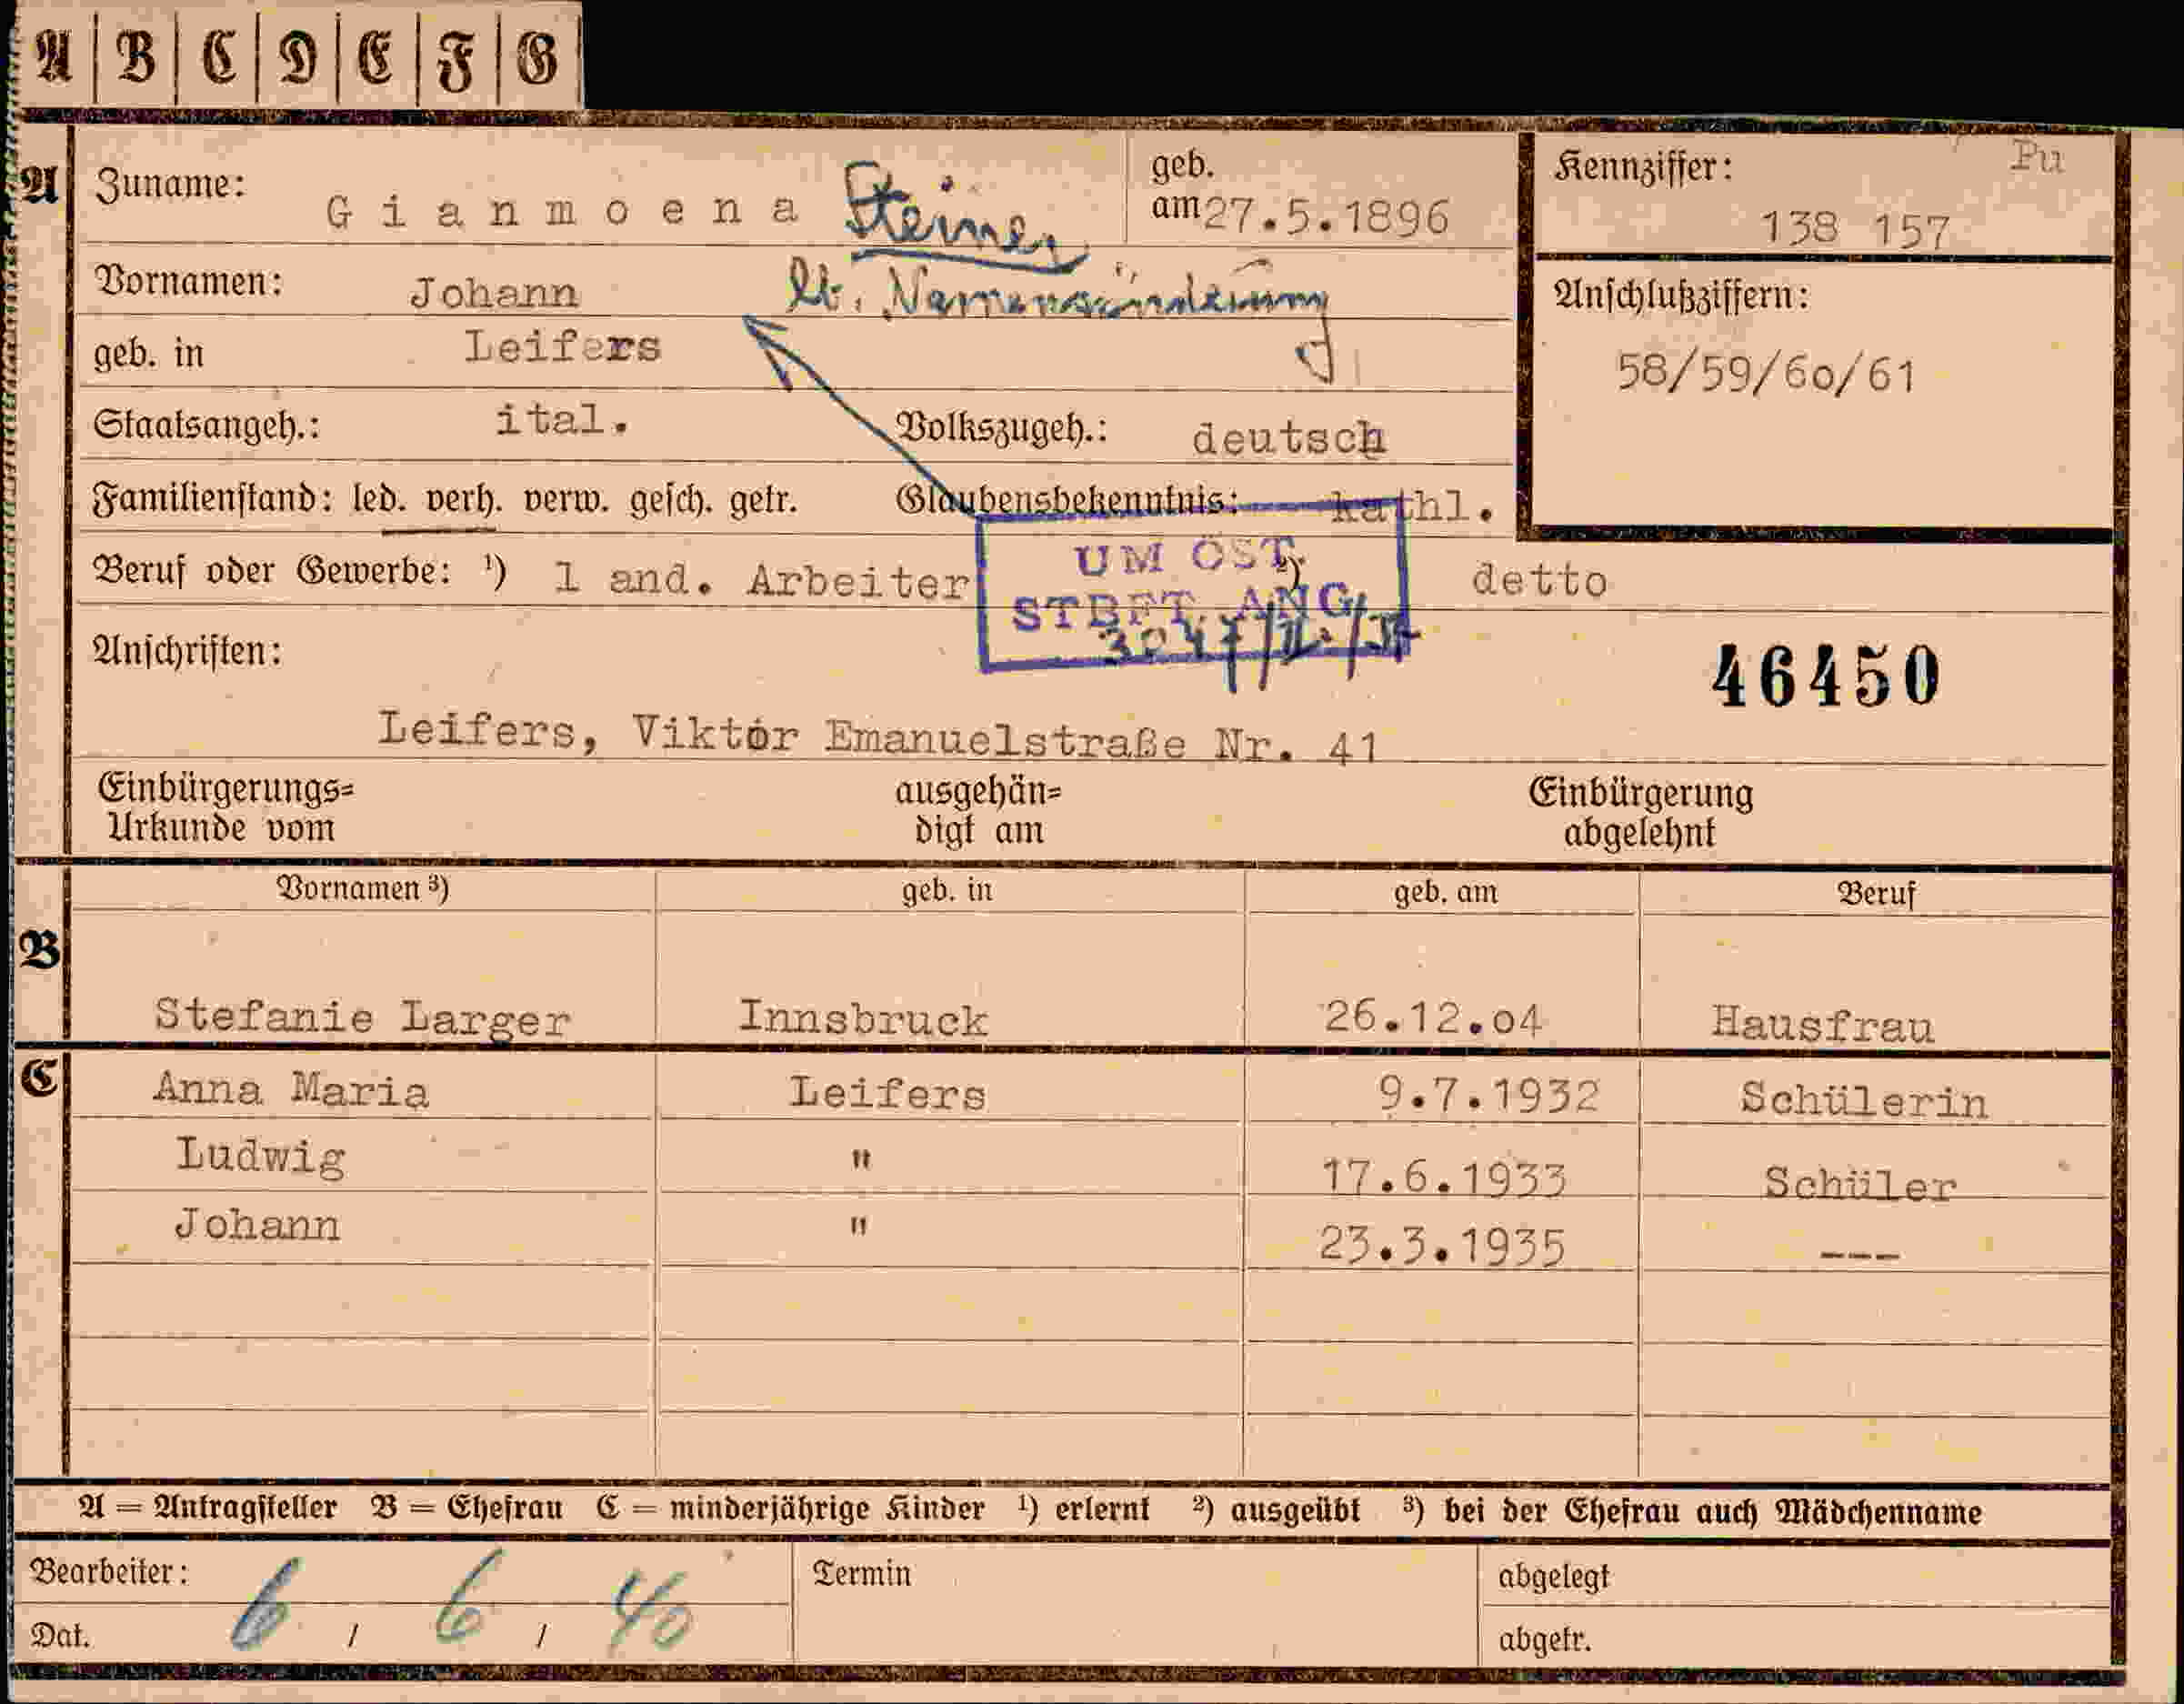 A B C D E F G
A Zuname: Gianmoena Steiner geb. am 27.5.1896
Kennziffer: Pu
138 157
Vornamen: Johann lt. Namensänderung
Anschlußziffern:
58/59/60/61
geb. in Leifers
Staatsangeh.: ital. Volkszugeh.: deutsch
Familienstand: led. verh. verw. gesch. getr. Glaubensbekenntnis: kathl.
Beruf oder Gewerbe: ¹) 1 and. Arbeiter detto
UM ÖST.
STBFT. ANG.
Anschriften:
46450
Leifers, Viktor Emanuelstraße Nr. 41
Einbürgerungs= ausgehän= Einbürgerung
Urkunde vom digt am abgelehnt
Vornamen ³) geb. in geb. am Beruf
B
Stefanie Larger Innsbruck 26.12.04 Hausfrau
C Anna Maria Leifers 9.7.1932 Schülerin
Ludwig " 17.6.1933 Schüler
Johann " 23.3.1935 ---
A = Antragsteller B = Ehefrau C = minderjährige Kinder ¹) erlernt ²) ausgeübt ³) bei der Ehefrau auch Mädchenname
Bearbeiter: Termin abgelegt
Dat. 6 / 6 / 40 abgetr.